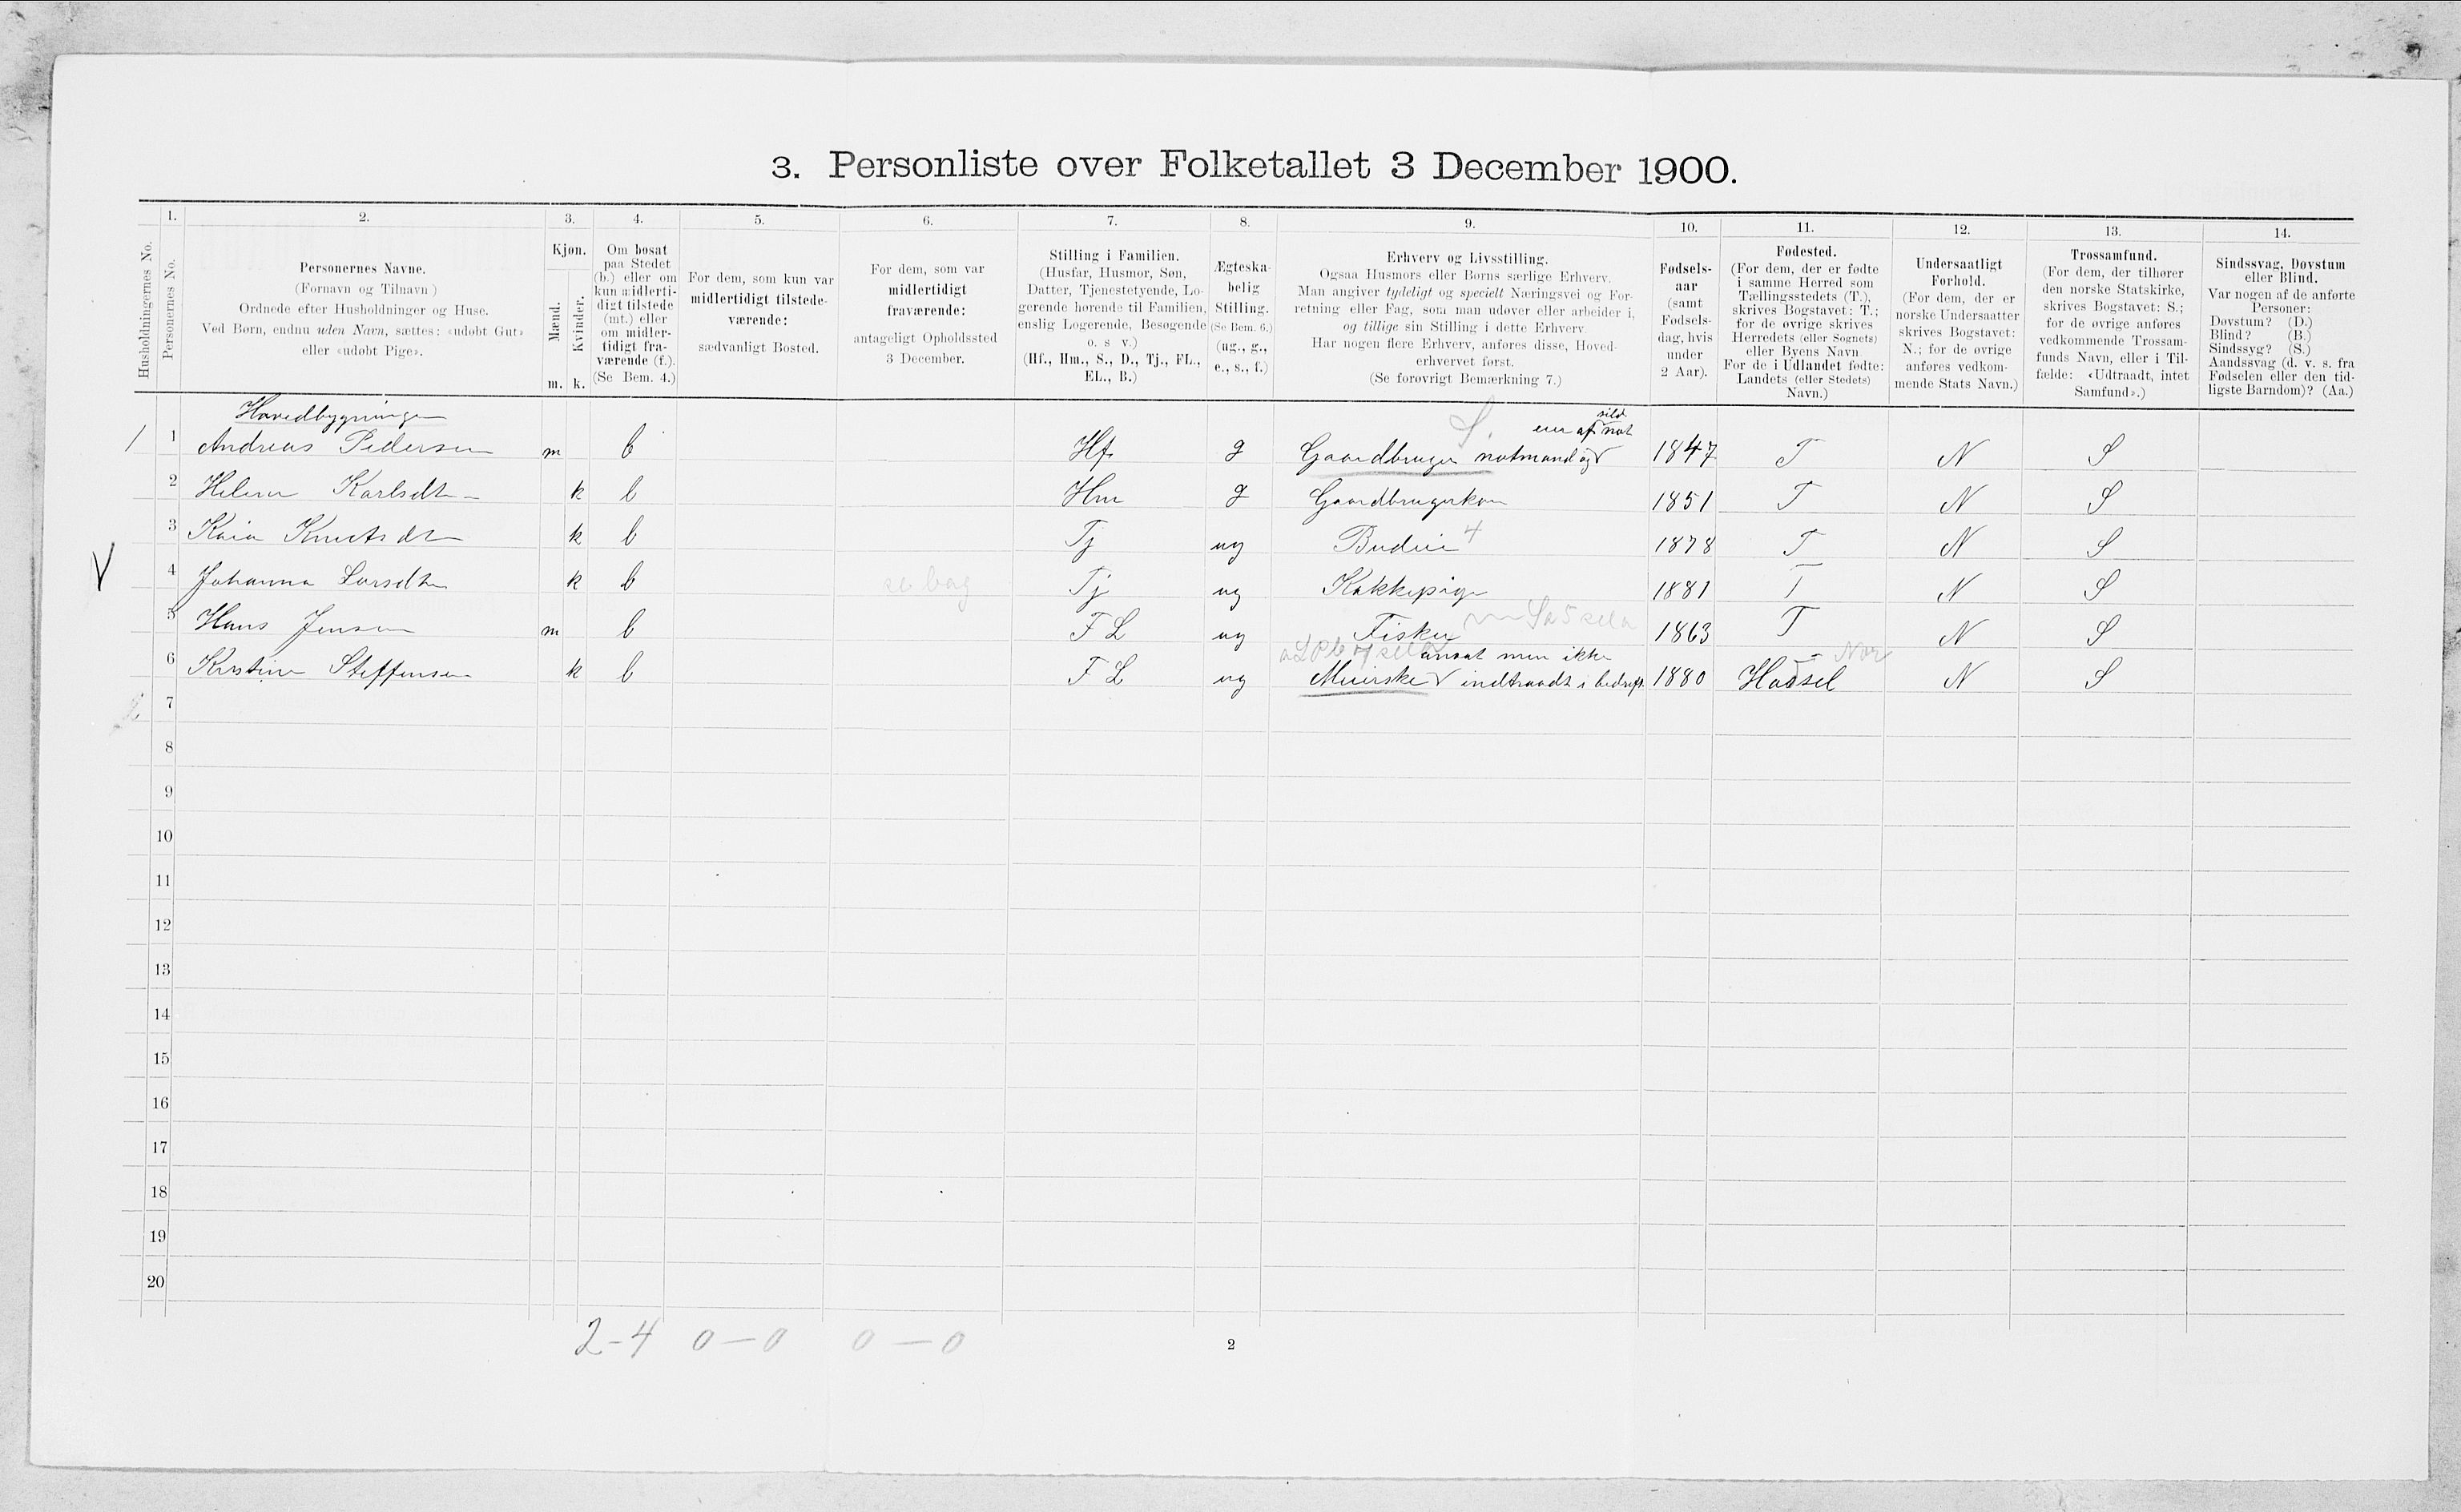 3. Personliste over Folketallet 3 December 1900.
Husholdningernes No.
1. Personernes No.
2.
Personernes Navne.
(Fornavn og Tilnavn)
Ordnede efter Husholdninger og Huse.
Ved Børn, endnu uden Navn, sættes: «udøbt Gut»
eller «udøbt Pige».
3.
Kjøn.
Mænd. Kvinder.
m. k.
4.
Om bosat
paa Stedet
(b.) eller om
kun midlerti-
digt tilstede
(mt.) eller
om midler-
tidigt fra-
værende (f.).
(Se Bem. 4.)
5.
For dem, som kun var
midlertidigt tilstede-
værende:
sædvanligt Bosted.
6.
For dem, som var
midlertidigt
fraværende:
antageligt Opholdssted
3 December.
7.
Stilling i Familien.
(Husfar, Husmor, Søn,
Datter, Tjenestetyende, Lo-
gerende hørende til Familien,
enslig Logerende, Besøgende
o. s v.)
(Hf., Hm., S., D., Tj., FL.,
EL., B.)
8.
Ægteska-
belig
Stilling.
(Se Bem. 6.)
(ug., g.,
e., s., f.)
9.
Erhverv og Livsstilling.
Ogsaa Husmors eller Børns særlige Erhverv.
Man angiver tydeligt og specielt Næringsvei og For-
retning eller Fag, som man udøver eller arbeider i,
og tillige sin Stilling i dette Erhverv.
Har nogen flere Erhverv, anføres disse, Hoved-
erhvervet først.
(Se forøvrigt Bemærkning 7.)
10.
Fødsels-
aar
(samt
Fødsels-
dag, hvis
under
2 Aar).
11.
Fødested.
(For dem, der er fødte
i samme Herred som
Tællingsstedets (T.),
skrives Bogstavet: T.;
for de øvrige skrives
Herredets (eller Sognets)
eller Byens Navn.
For de i Udlandet fødte:
Landets (eller Stedets)
Navn.)
12.
Undersaatligt
Forhold.
(For dem, der er
norske Undersaatter
skrives Bogstavet:
N.; for de øvrige
anføres vedkom-
mende Stats Navn.)
13.
Trossamfund.
(For dem, der tilhører
den norske Statskirke,
skrives Bogstavet: S.;
for de øvrige anføres
vedkommende Trossam-
funds Navn, eller i Til-
fælde: «Udtraadt, intet
Samfund».)
14.
Sindssvag, Døvstum
eller Blind.
Var nogen af de anførte
Personer:
Døvstum? (D.)
Blind? (B.)
Sindssyg? (S.)
Aandssvag (d. v. s. fra
Fødselen eller den tid-
ligste Barndom)? (Aa.)
Hovedbygningen
S.
sild
eier af not
1 1 Andreas Pedersen m b Hf. g Gaardbruger notmand og 1847 T N S
2 Helene Karlsdtr k b Hm g Gaardbrugerkone 1851 T N S
3 Kaia Knutsdtr k b Tj ug Budeie 4 1878 T N S
V 4 Johanna Larsdtr k b se bag Tj ug Kokkepige 1881 T N S
5 Hans Jensen m b F L ug Fisker 1863 T N S
ansat men ikke Nor
6 Kristine Steffensen k b F L ug Meierske indtraadt i bedrift 1880 Hadsel N S
7
8
9
10
11
12
13
14
15
16
17
18
19
20
2-4 0-0 0-0
2